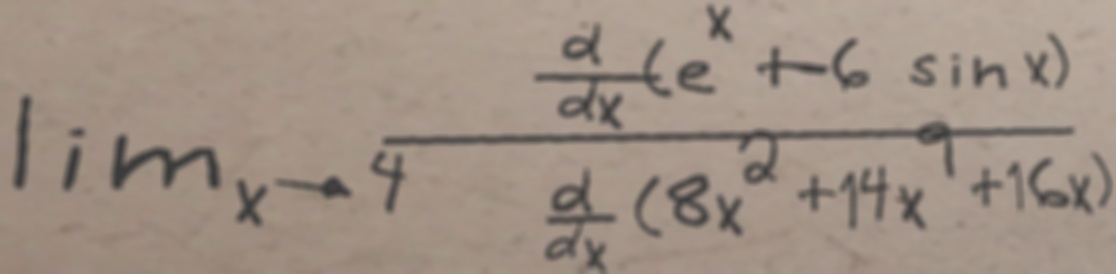 \lim_{x \to 4} \frac{\frac{d}{dx}(e^x + -6 \sin x)}{\frac{d}{dx}(8x^2 + 14x^9 + 16x)}